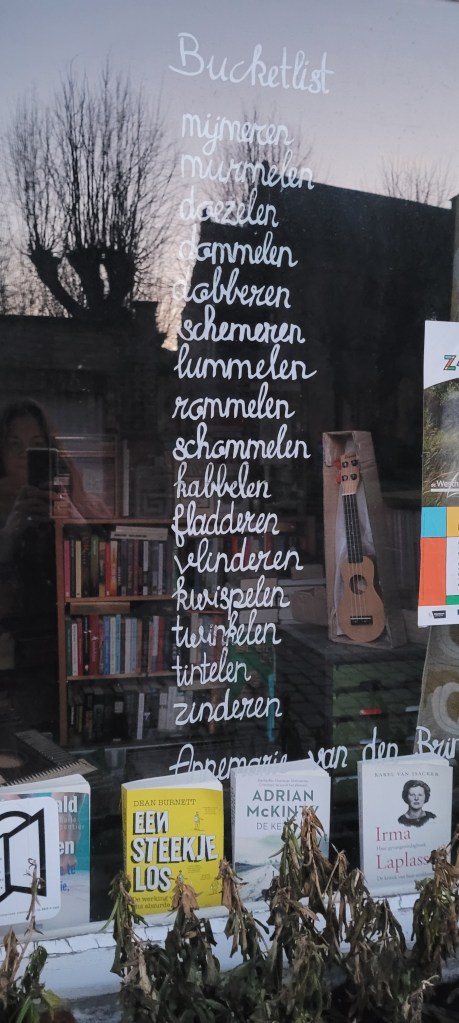 Bucketlist
mijmeren
murmelen
doezelen
dommelen
dobberen
schemeren
lummelen
rommelen
schommelen
kabbelen
fladderen
vlinderen
kwispelen
twinkelen
tintelen
zinderen
Annemarie van den Brin
DEAN BURNETT
EEN
STEEKJE
LOS
De werking
absurde
ADRIAN
McKINTY
DE KE
KAREL VAN
Irma
Laplass